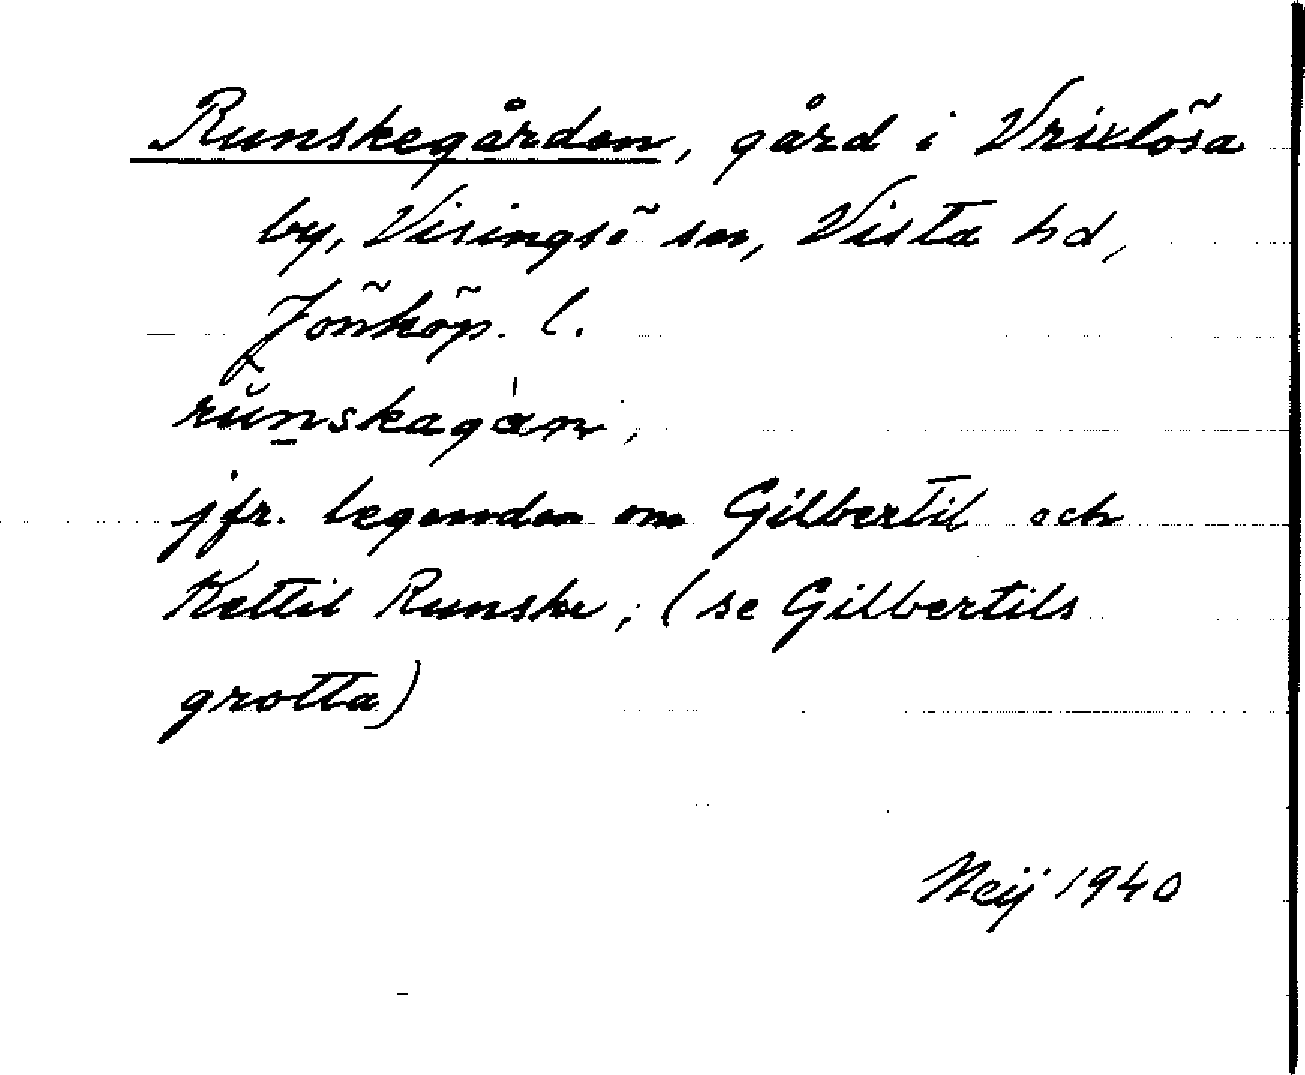 Runskegården, gård i Vrixlösa
by, Visingsö sn, Vista hd,
Jönköp. l.
rŭn̲skagàn,
jfr. legenden om Gilbertil och
Kettil Runske, (se Gilbertils
grotta)
Meij 1940